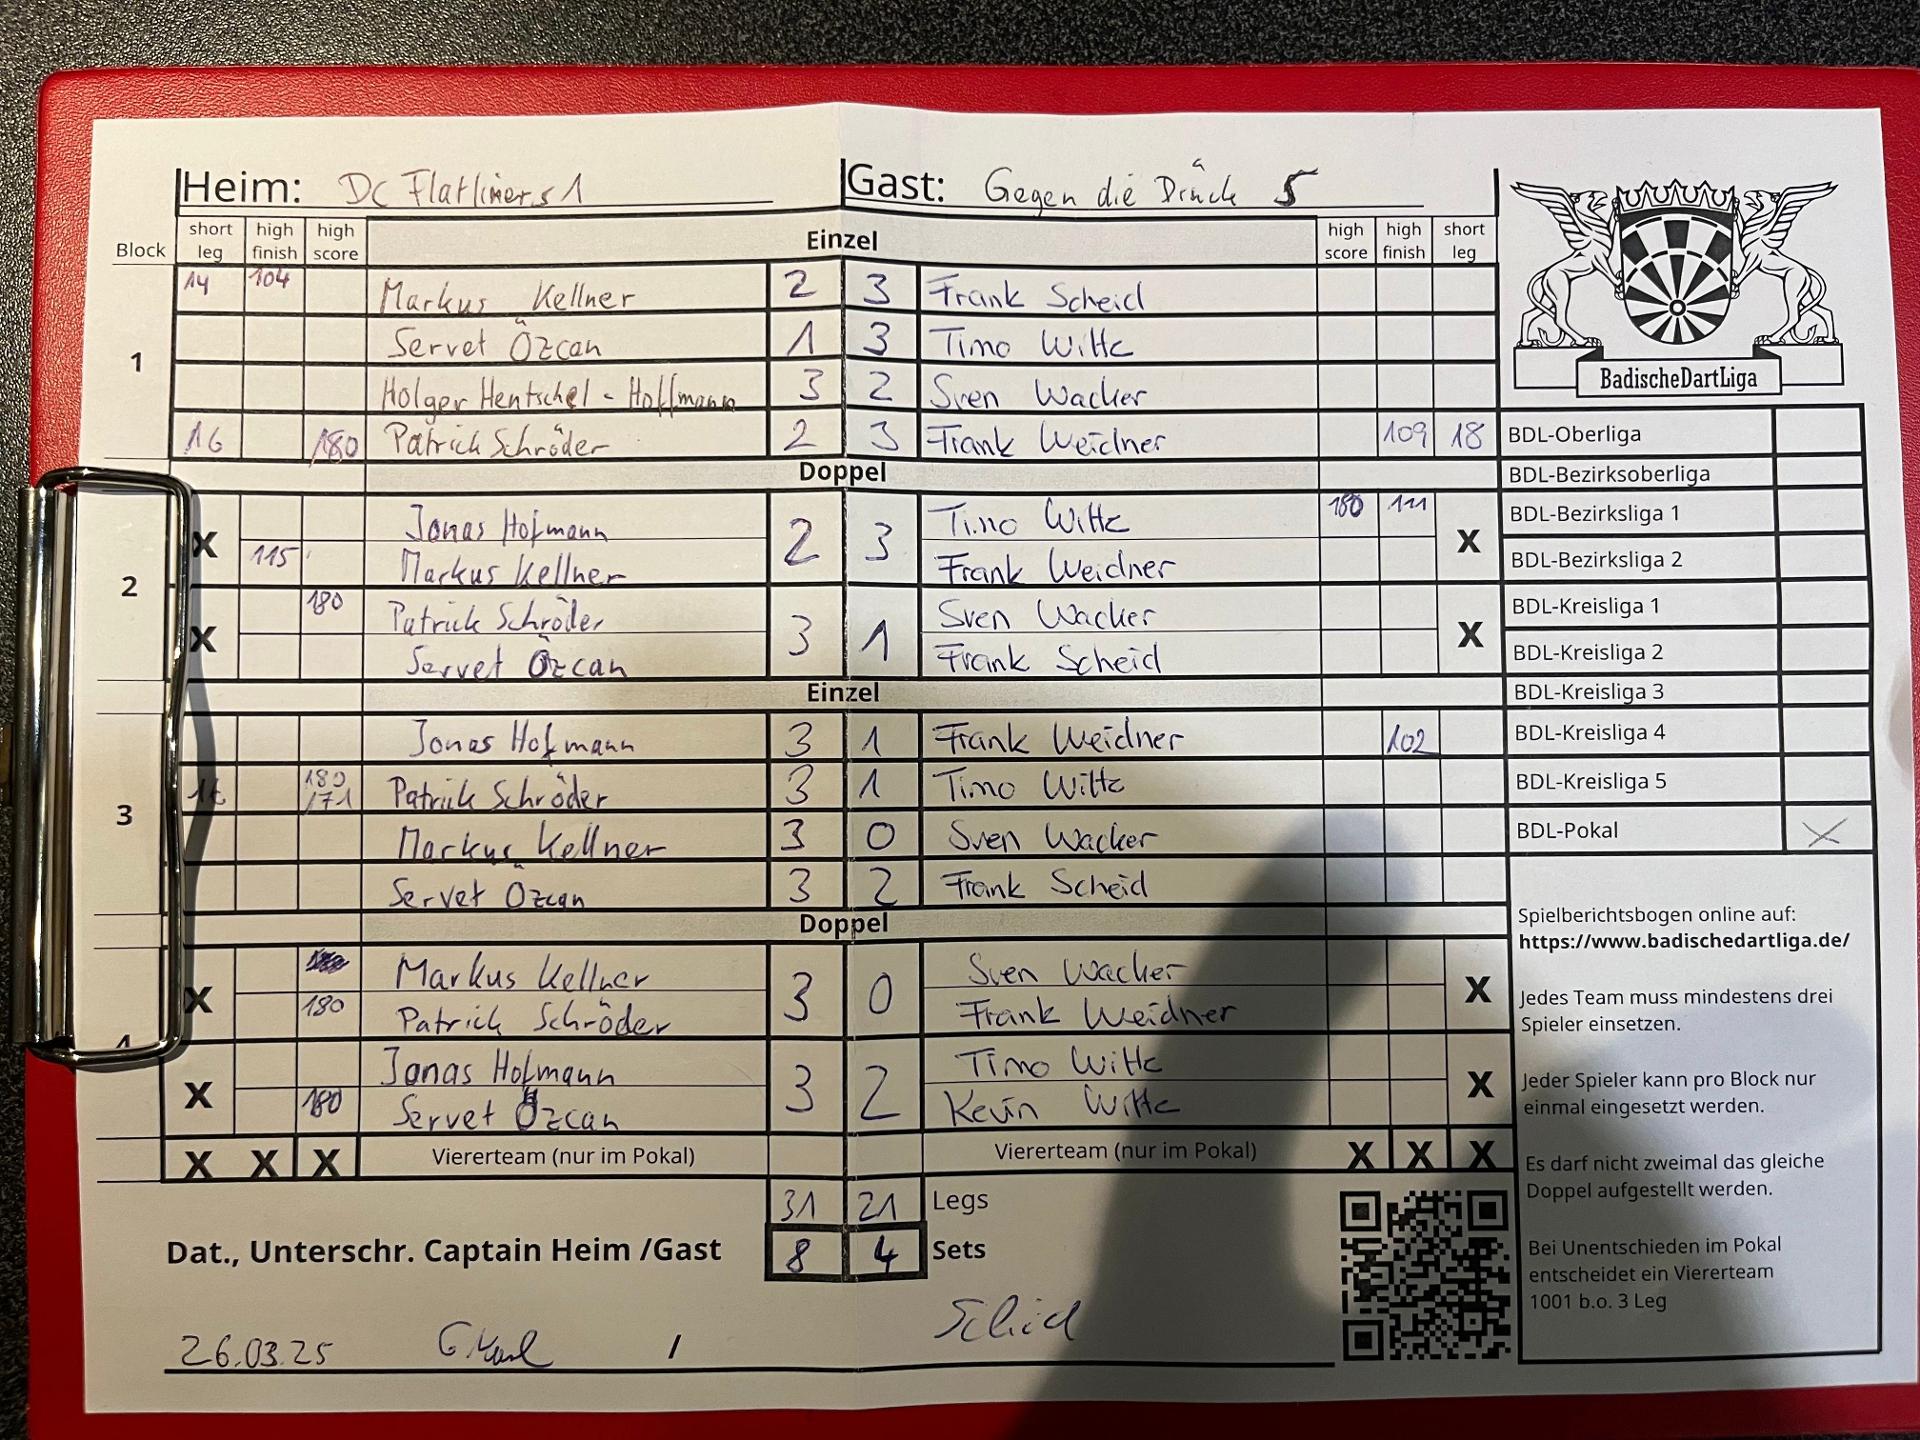 Heim: DC Flatliners 1 Gast: Gegen die Drück 5
Block short leg high finish high score Einzel high score high finish short leg
1
14 104 Markus Kellner 2 3 Frank Scheid
Servet Özcan 1 3 Timo Witte
Holger Hentschel - Hoffmann 3 2 Sven Wacker
16 180 Patrick Schröder 2 3 Frank Weidner 109 18
Doppel
2
X Jonas Hofmann 2 3 Timo Witte 180 111 X
115 Markus Kellner Frank Weidner
X 180 Patrick Schröder 3 1 Sven Wacker X
Servet Özcan Frank Scheid
Einzel
3
Jonas Hofmann 3 1 Frank Weidner 102
180
171 Patrick Schröder 3 1 Timo Witte
Markus Kellner 3 0 Sven Wacker
Servet Özcan 3 2 Frank Scheid
Doppel
X Markus Kellner 3 0 Sven Wacker X
180 Patrick Schröder Frank Weidner
X Jonas Hofmann 3 2 Timo Witte X
180 Servet Özcan Kevin Witte
X X X Vierерteam (nur im Pokal) Viererteam (nur im Pokal) X X X
31 21 Legs
Dat., Unterschr. Captain Heim /Gast 8 4 Sets
26.03.25 / Scheid
BadischeDartLiga
BDL-Oberliga
BDL-Bezirksoberliga
BDL-Bezirksliga 1
BDL-Bezirksliga 2
BDL-Kreisliga 1
BDL-Kreisliga 2
BDL-Kreisliga 3
BDL-Kreisliga 4
BDL-Kreisliga 5
BDL-Pokal X
Spielberichtsbogen online auf:
https://www.badischedartliga.de/
Jedes Team muss mindestens drei
Spieler einsetzen.
Jeder Spieler kann pro Block nur
einmal eingesetzt werden.
Es darf nicht zweimal das gleiche
Doppel aufgestellt werden.
Bei Unentschieden im Pokal
entscheidet ein Viererteam
1001 b.o. 3 Leg